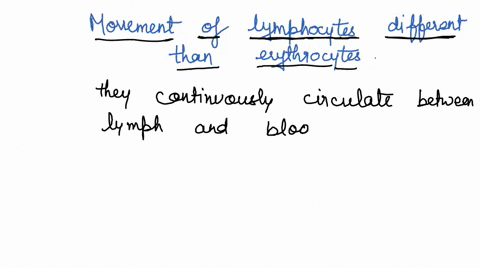 Movement of lymphocytes different
than erythrocytes.
they continuously circulate between
lymph and bloo